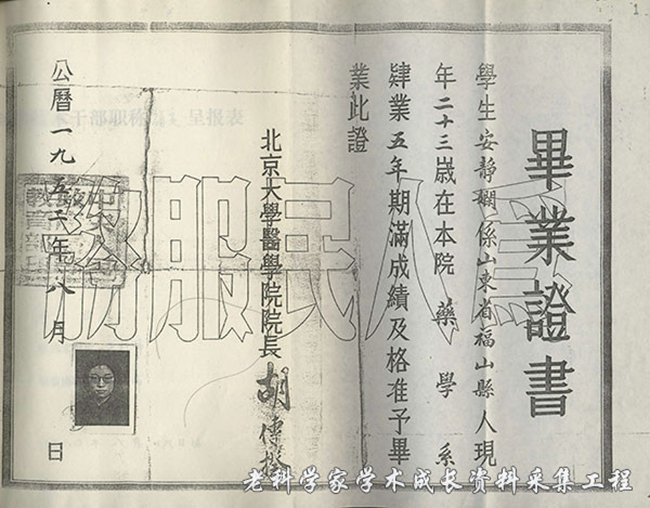 畢業證書
學生安靜嫻係山東省福山縣人現
年二十三歲在本院藥學系
肄業五年期滿成績及格准予畢
業此證
北京大學醫學院院長胡傳揆
公曆一九五二年八月 日
為人民服務
教育部印
干部职称 呈报表
老科学家学术成长资料采集工程
1